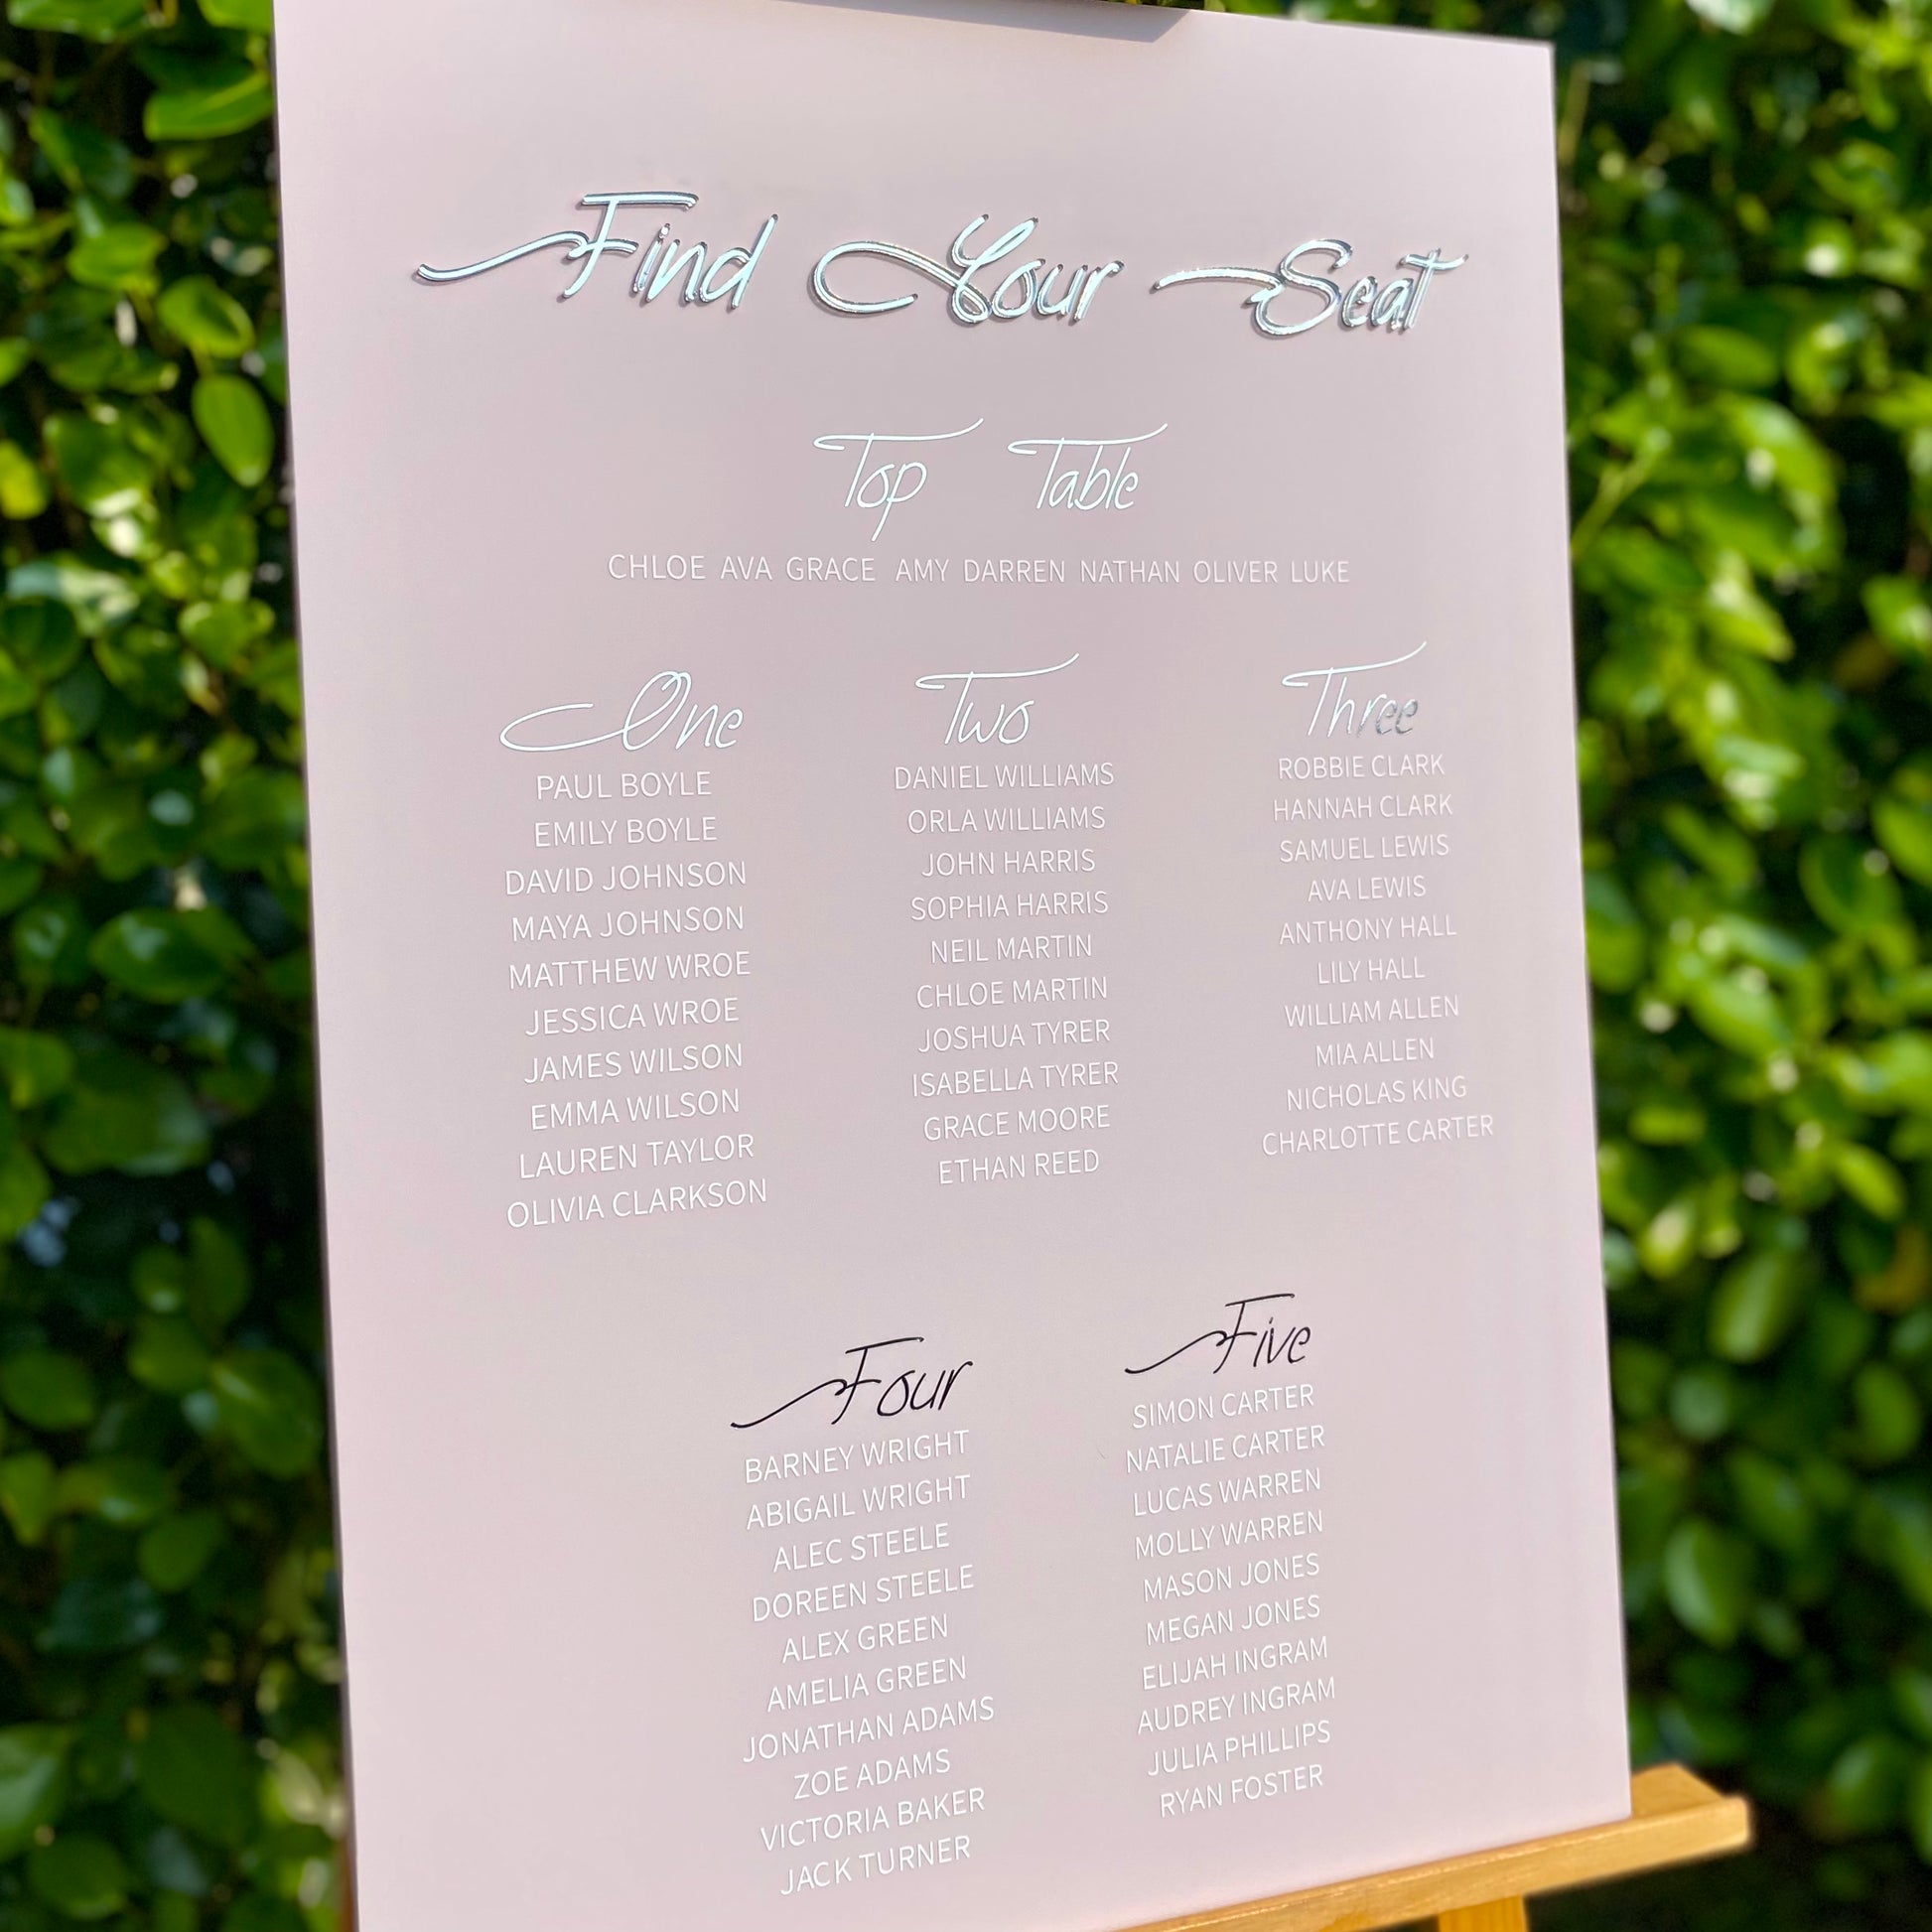 Find Your Seat
Top Table
CHLOE AVA GRACE AMY DARREN NATHAN OLIVER LUKE
One
PAUL BOYLE
EMILY BOYLE
DAVID JOHNSON
MAYA JOHNSON
MATTHEW WROE
JESSICA WROE
JAMES WILSON
EMMA WILSON
LAUREN TAYLOR
OLIVIA CLARKSON
Two
DANIEL WILLIAMS
ORLA WILLIAMS
JOHN HARRIS
SOPHIA HARRIS
NEIL MARTIN
CHLOE MARTIN
JOSHUA TYRER
ISABELLA TYRER
GRACE MOORE
ETHAN REED
Three
ROBBIE CLARK
HANNAH CLARK
SAMUEL LEWIS
AVA LEWIS
ANTHONY HALL
LILY HALL
WILLIAM ALLEN
MIA ALLEN
NICHOLAS KING
CHARLOTTE CARTER
Four
BARNEY WRIGHT
ABIGAIL WRIGHT
ALEC STEELE
DOREEN STEELE
ALEX GREEN
AMELIA GREEN
JONATHAN ADAMS
ZOE ADAMS
VICTORIA BAKER
JACK TURNER
Five
SIMON CARTER
NATALIE CARTER
LUCAS WARREN
MOLLY WARREN
MASON JONES
MEGAN JONES
ELIJAH INGRAM
AUDREY INGRAM
JULIA PHILLIPS
RYAN FOSTER